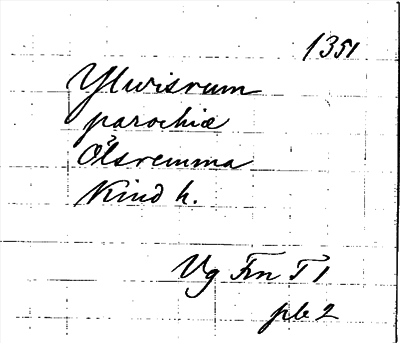 1351
Ylwisrum
parochiæ
Ölsremma
Kind h.
Vg Fm T 1
pb 2